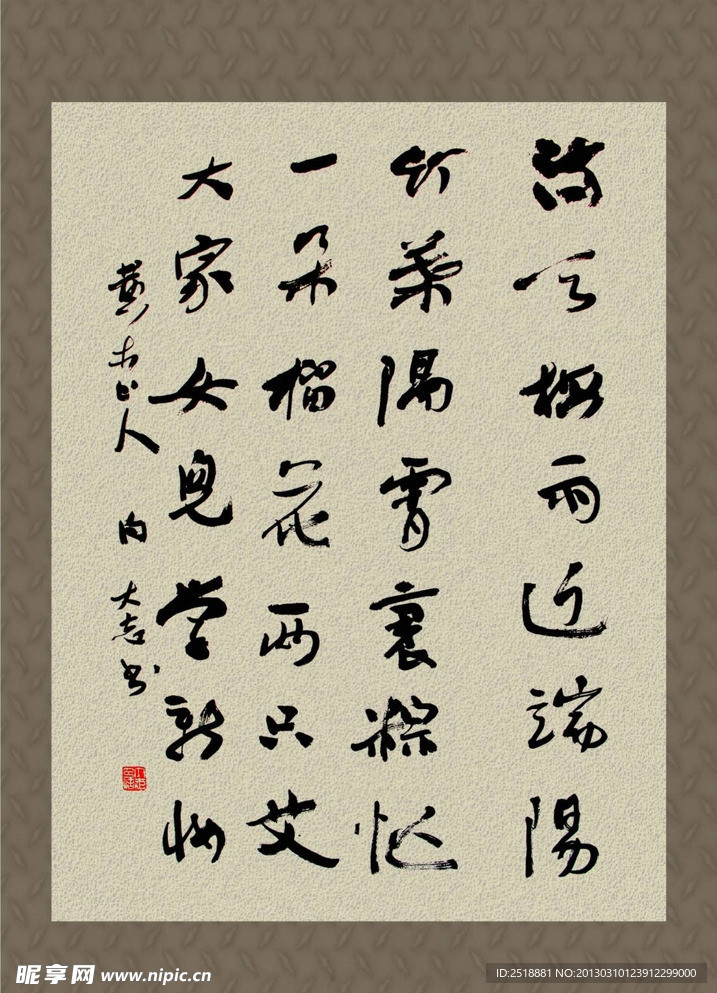 满天梅雨近端陽
竹葉隔霄裹粽忙
一朵榴花兩只艾
大家女兒學新
黄 山人 句 大志书
昵享网 www.nipic.cn
ID:2518881 NO:20130310123912299000